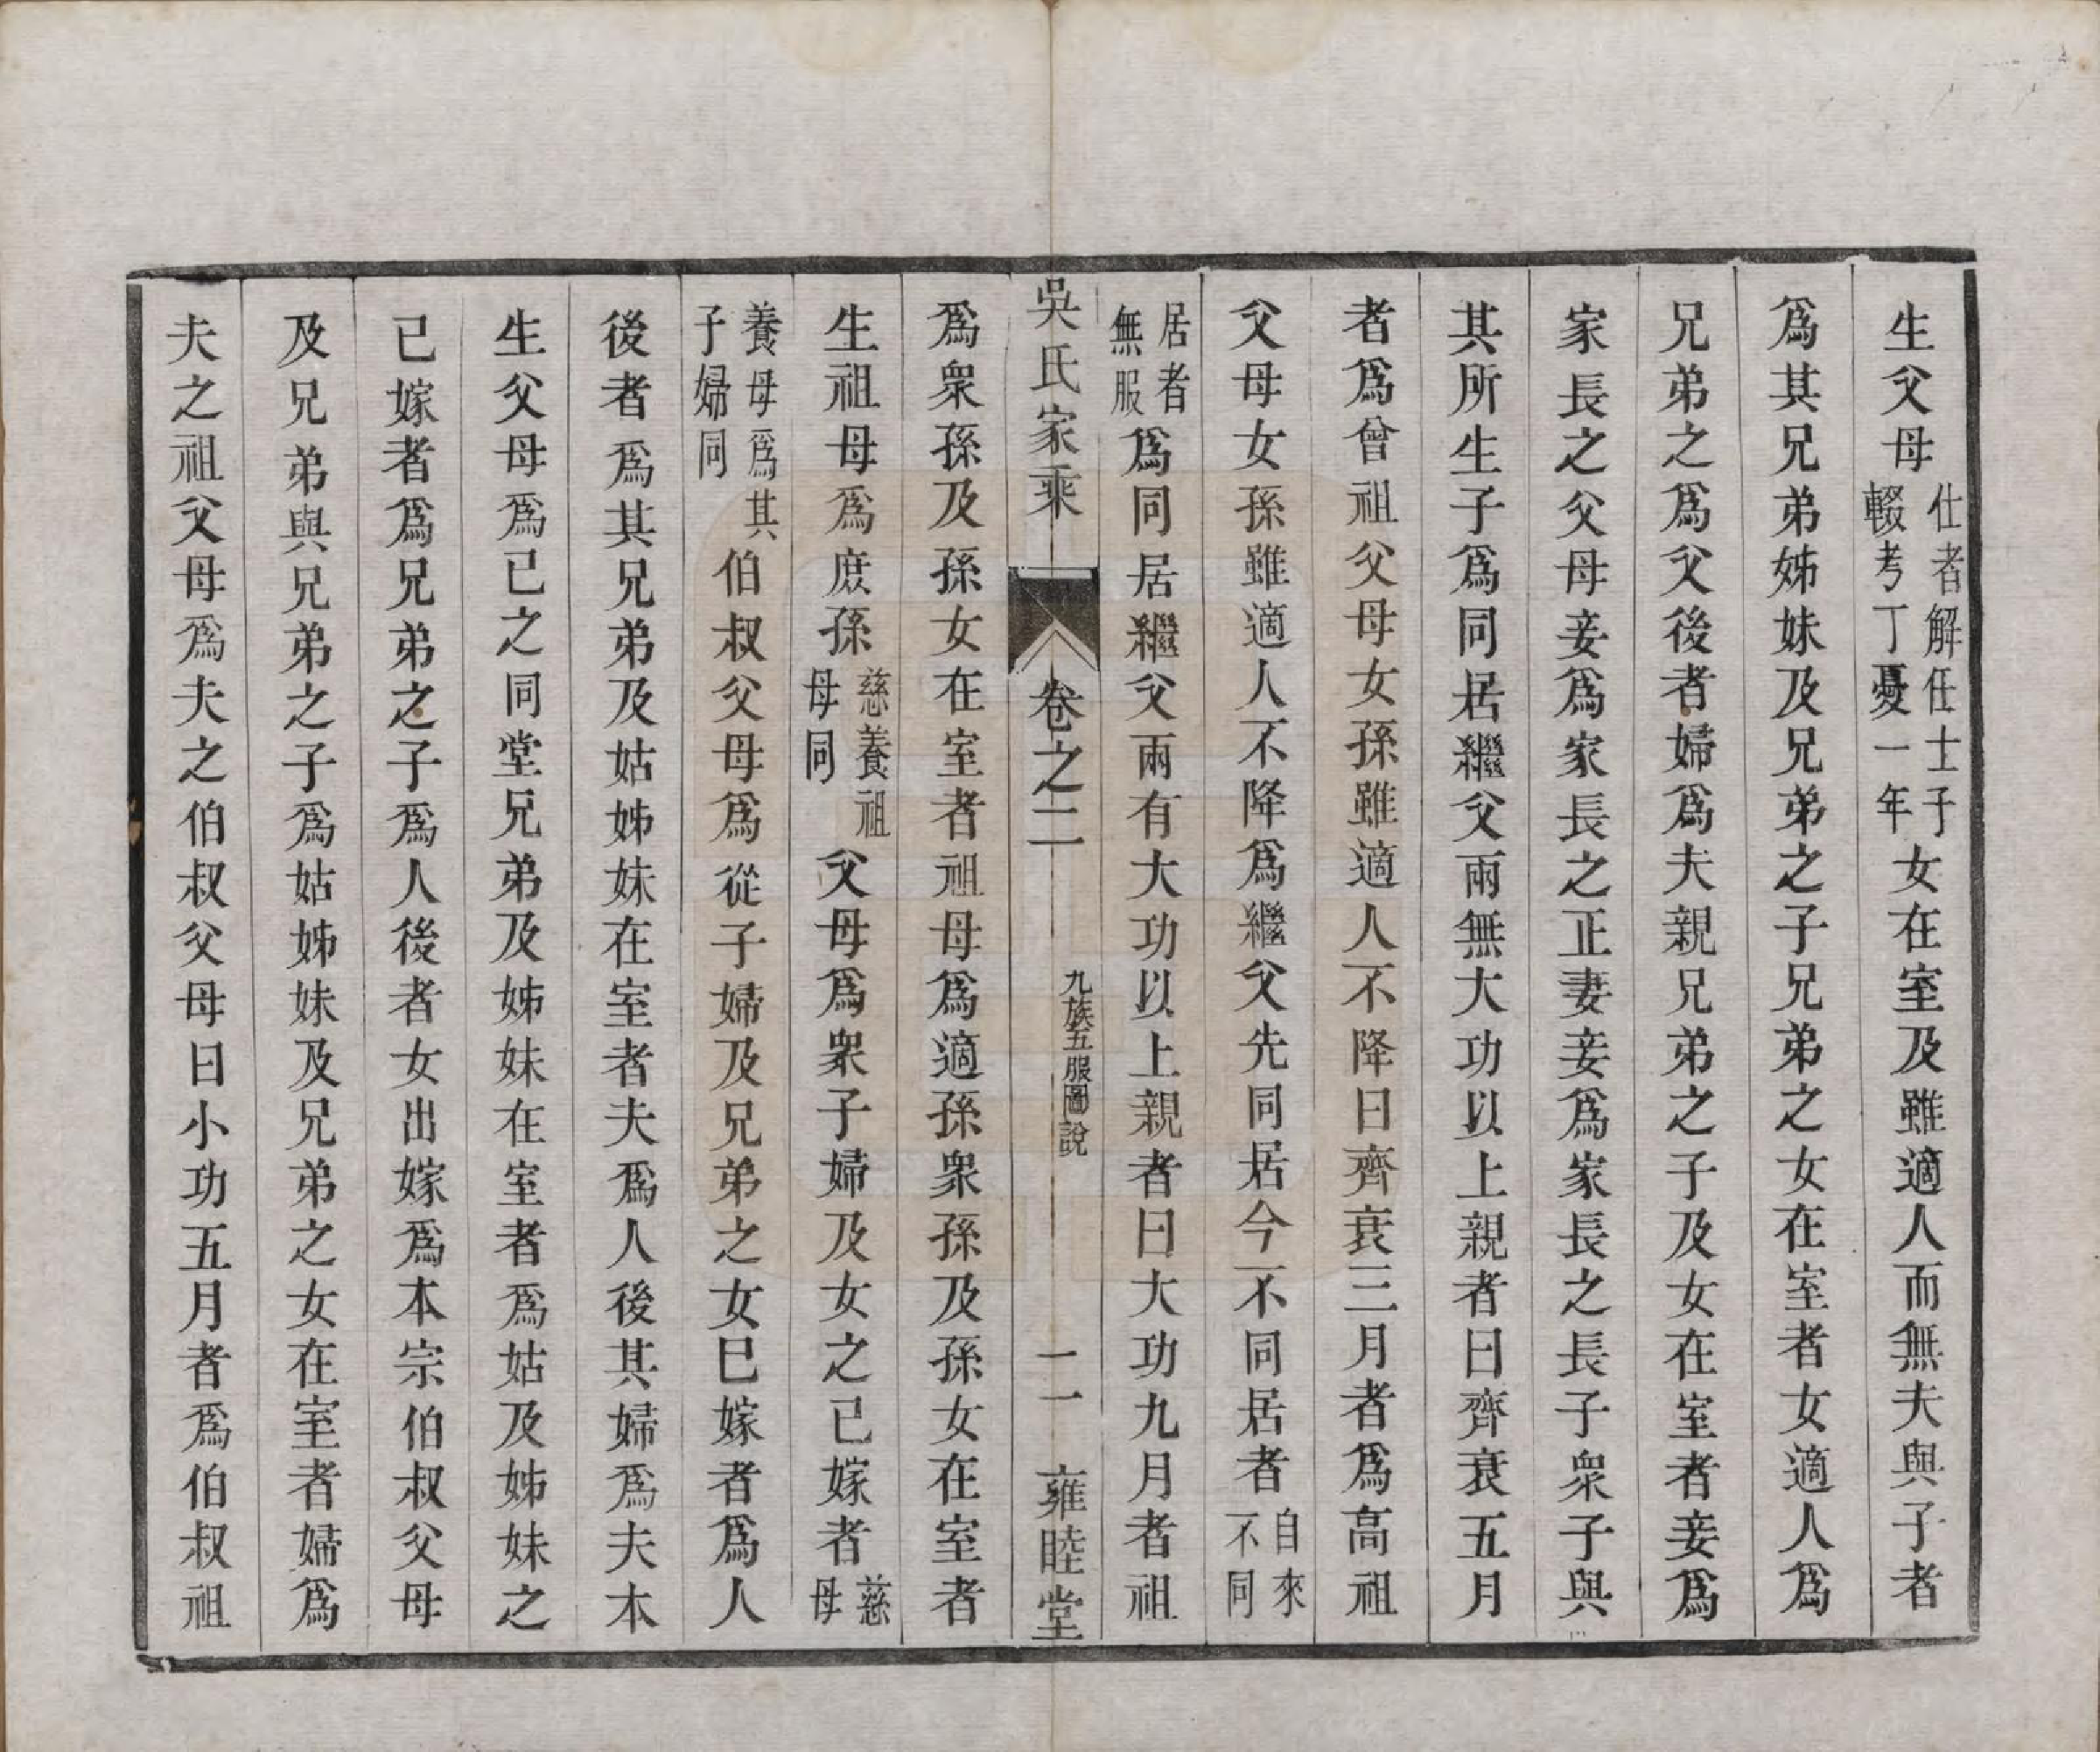 生父母仕者解任士子輟考丁憂一年女在室及雖適人而無夫與子者
爲其兄弟姊妹及兄弟之子兄弟之女在室者女適人爲
兄弟之爲父後者婦爲夫親兄弟之子及女在室者妾爲
家長之父母妾爲家長之正妻妾爲家長之長子衆子與
其所生子爲同居繼父兩無大功以上親者曰齊衰五月
者爲曾祖父母女孫雖適人不降曰齊衰三月者爲高祖
父母女孫雖適人不降爲繼父先同居今不同居者自來不同
居者無服爲同居繼父兩有大功以上親者曰大功九月者祖
吳氏家乘
卷之二
九族五服圖說
二
雍睦堂
爲衆孫及孫女在室者祖母爲適孫衆孫及孫女在室者
生祖母爲庶孫慈養祖母同父母爲衆子婦及女之已嫁者慈母
養母爲其子婦同伯叔父母爲從子婦及兄弟之女已嫁者爲人
後者爲其兄弟及姑姊妹在室者夫爲人後其婦爲夫本
生父母爲已之同堂兄弟及姊妹在室者爲姑及姊妹之
已嫁者爲兄弟之子爲人後者女出嫁爲本宗伯叔父母
及兄弟與兄弟之子爲姑姊妹及兄弟之女在室者婦爲
夫之祖父母爲夫之伯叔父母曰小功五月者爲伯叔祖